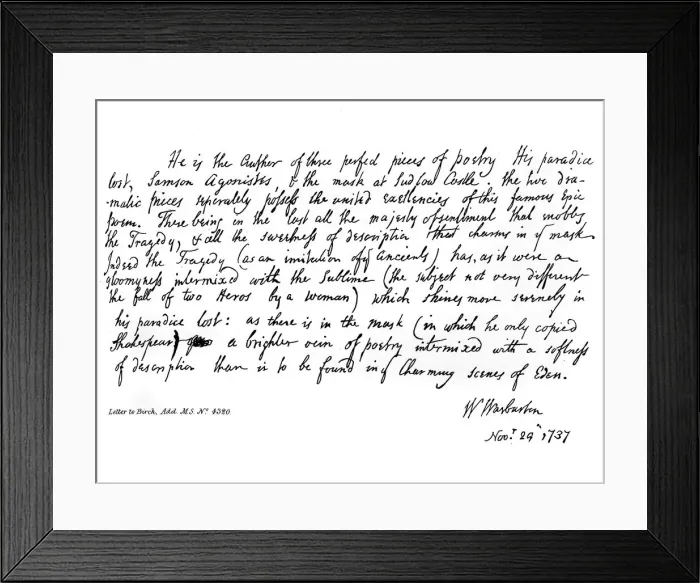 He is the Author of three perfect pieces of poetry His paradice
lost, Samson Agonistes, & the mask at Ludlow Castle. the two dra-
-matic pieces seperately possess the united excellencies of this famous Epic
poem. There being in the last all the majesty of sentiment that enobles
the Tragedy, & all the sweetness of description that charms in yͤ mask
Indeed the Tragedy (as an imitation of yͤ Ancients) has, as it were a
gloomyness intermixed with the Sublime (the subject not very different
the fall of two Heros by a woman) which shines more serenely in
his paradice lost: as there is in the mask (in which he only copied
Shakespear) a brighter vein of poetry intermixed with a softness
of description than is to be found in yͤ Charming scenes of Eden.
W Warburton
Novʳ 29ᵗʰ 1737
Letter to Birch, Add. M.S. Nº 4320